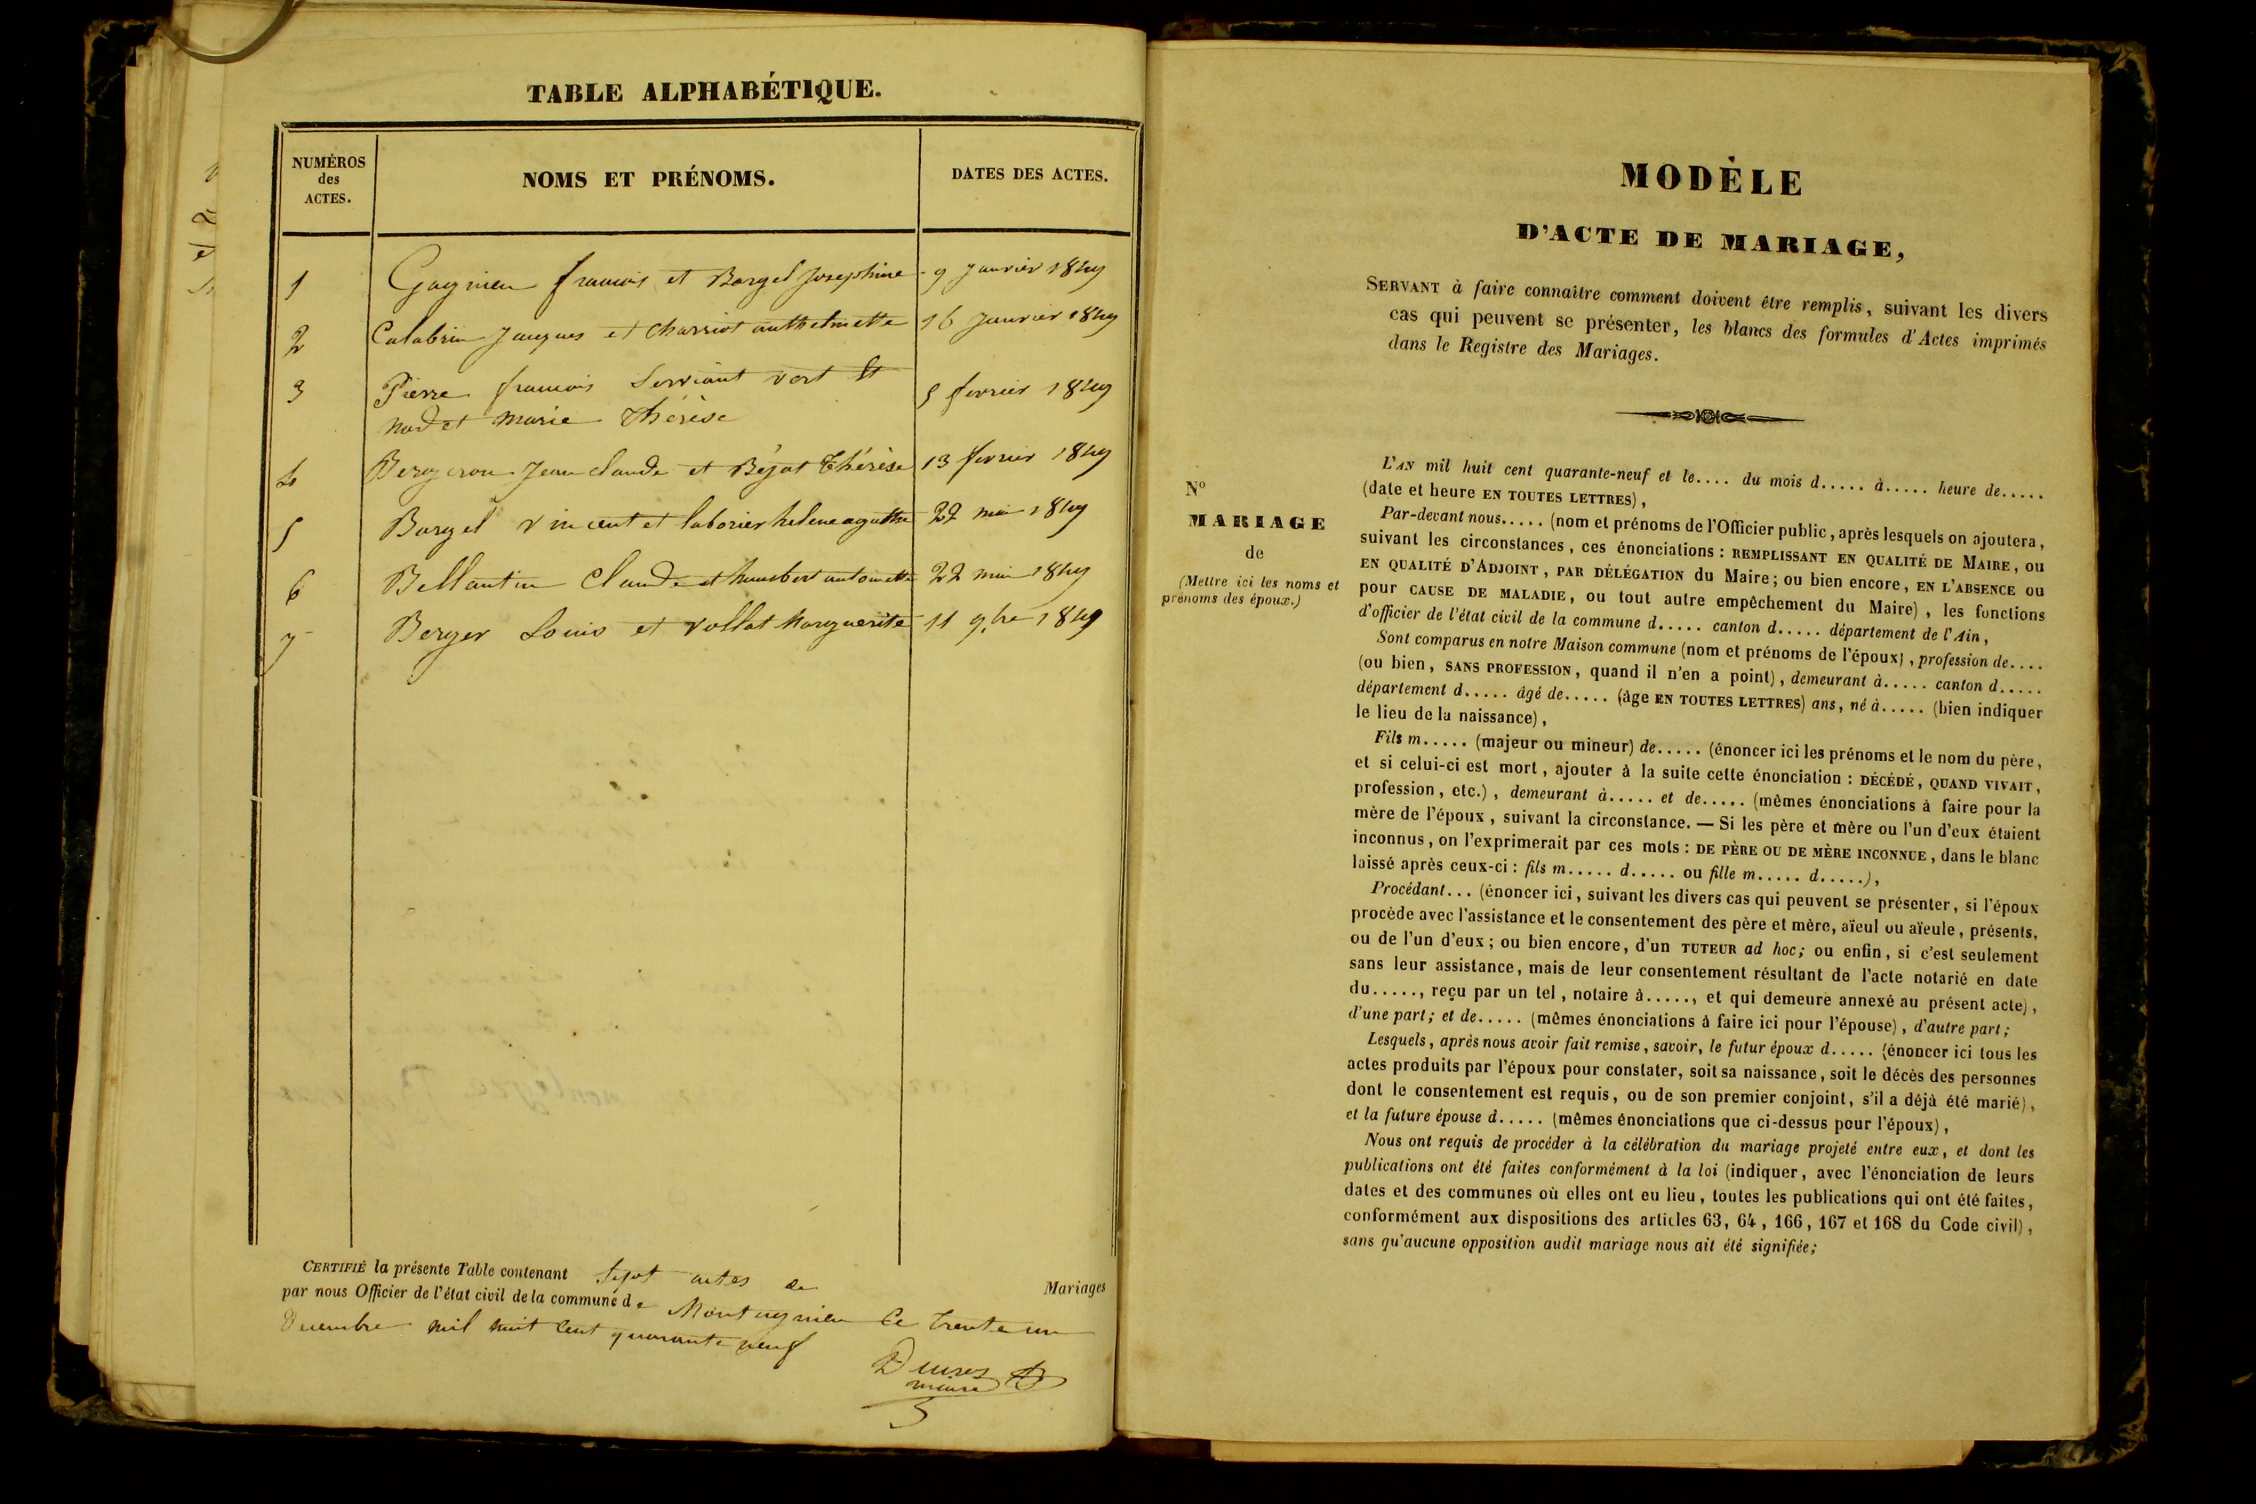 TABLE ALPHABÉTIQUE.
NUMÉROS
des
ACTES.
NOMS ET PRÉNOMS.
DATES DES ACTES.
1 Gagnieu francois et Bargel Josephine 9 Janvier 1849
2 Calabrin Jacques et Charriot anthelmette 16 Janvier 1849
3 Pierre francois Servient vert et 5 fevrier 1849
et marie thérèse
4 Bergeron Jean claude et Béjat thérèse 13 fevrier 1849
5 Bargel vincent et laborier helene agathe 22 mai 1849
6 Bellantin Claude et humbert antoinette 22 mai 1849
7 Berger Louis et vollat Marguerite 11 9.bre 1849
CERTIFIÉ la présente Table contenant Sept actes de Mariages
par nous Officier de l'état civil de la commune de Montagnieu Ce trente un
Decembre mil huit cent quarante neuf
maire
MODÈLE
D'ACTE DE MARIAGE,
SERVANT à faire connaître comment doivent être remplis, suivant les divers
cas qui peuvent se présenter, les blancs des formules d'Actes imprimés
dans le Registre des Mariages.
N°
MARIAGE
de
(Mettre ici les noms et
prénoms des époux.)
L'AN mil huit cent quarante-neuf et le.... du mois d..... à..... heure de.....
(date et heure EN TOUTES LETTRES),
Par-devant nous..... (nom et prénoms de l'Officier public, après lesquels on ajoutera,
suivant les circonstances, ces énonciations : REMPLISSANT EN QUALITÉ DE MAIRE, OU
EN QUALITÉ D'ADJOINT, PAR DÉLÉGATION du Maire; ou bien encore, EN L'ABSENCE OU
pour CAUSE DE MALADIE, ou tout autre empêchement du Maire), les fonctions
d'officier de l'état civil de la commune d..... canton d..... département de l'Ain,
Sont comparus en notre Maison commune (nom et prénoms de l'époux), profession de....
(ou bien, SANS PROFESSION, quand il n'en a point), demeurant à..... canton d.....
département d..... âgé de..... (âge EN TOUTES LETTRES) ans, né à..... (bien indiquer
le lieu de la naissance),
Fils m..... (majeur ou mineur) de..... (énoncer ici les prénoms et le nom du père,
et si celui-ci est mort, ajouter à la suite cette énonciation : DÉCÉDÉ, QUAND VIVAIT,
profession, etc.), demeurant à..... et de..... (mêmes énonciations à faire pour la
mère de l'époux, suivant la circonstance. — Si les père et mère ou l'un d'eux étaient
inconnus, on l'exprimerait par ces mots : DE PÈRE OU DE MÈRE INCONNUE, dans le blanc
laissé après ceux-ci : fils m..... d..... ou fille m..... d.....),
Procédant... (énoncer ici, suivant les divers cas qui peuvent se présenter, si l'époux
procède avec l'assistance et le consentement des père et mère, aïeul ou aïeule, présents,
ou de l'un d'eux; ou bien encore, d'un TUTEUR ad hoc; ou enfin, si c'est seulement
sans leur assistance, mais de leur consentement résultant de l'acte notarié en date
du....., reçu par un tel, notaire à....., et qui demeure annexé au présent acte),
d'une part; et de..... (mêmes énonciations à faire ici pour l'épouse), d'autre part;
Lesquels, après nous avoir fait remise, savoir, le futur époux d..... (énoncer ici tous les
actes produits par l'époux pour constater, soit sa naissance, soit le décès des personnes
dont le consentement est requis, ou de son premier conjoint, s'il a déjà été marié),
et la future épouse d..... (mêmes énonciations que ci-dessus pour l'époux),
Nous ont requis de procéder à la célébration du mariage projeté entre eux, et dont les
publications ont été faites conformément à la loi (indiquer, avec l'énonciation de leurs
dates et des communes où elles ont eu lieu, toutes les publications qui ont été faites,
conformément aux dispositions des articles 63, 64, 166, 167 et 168 du Code civil),
sans qu'aucune opposition audit mariage nous ait été signifiée;